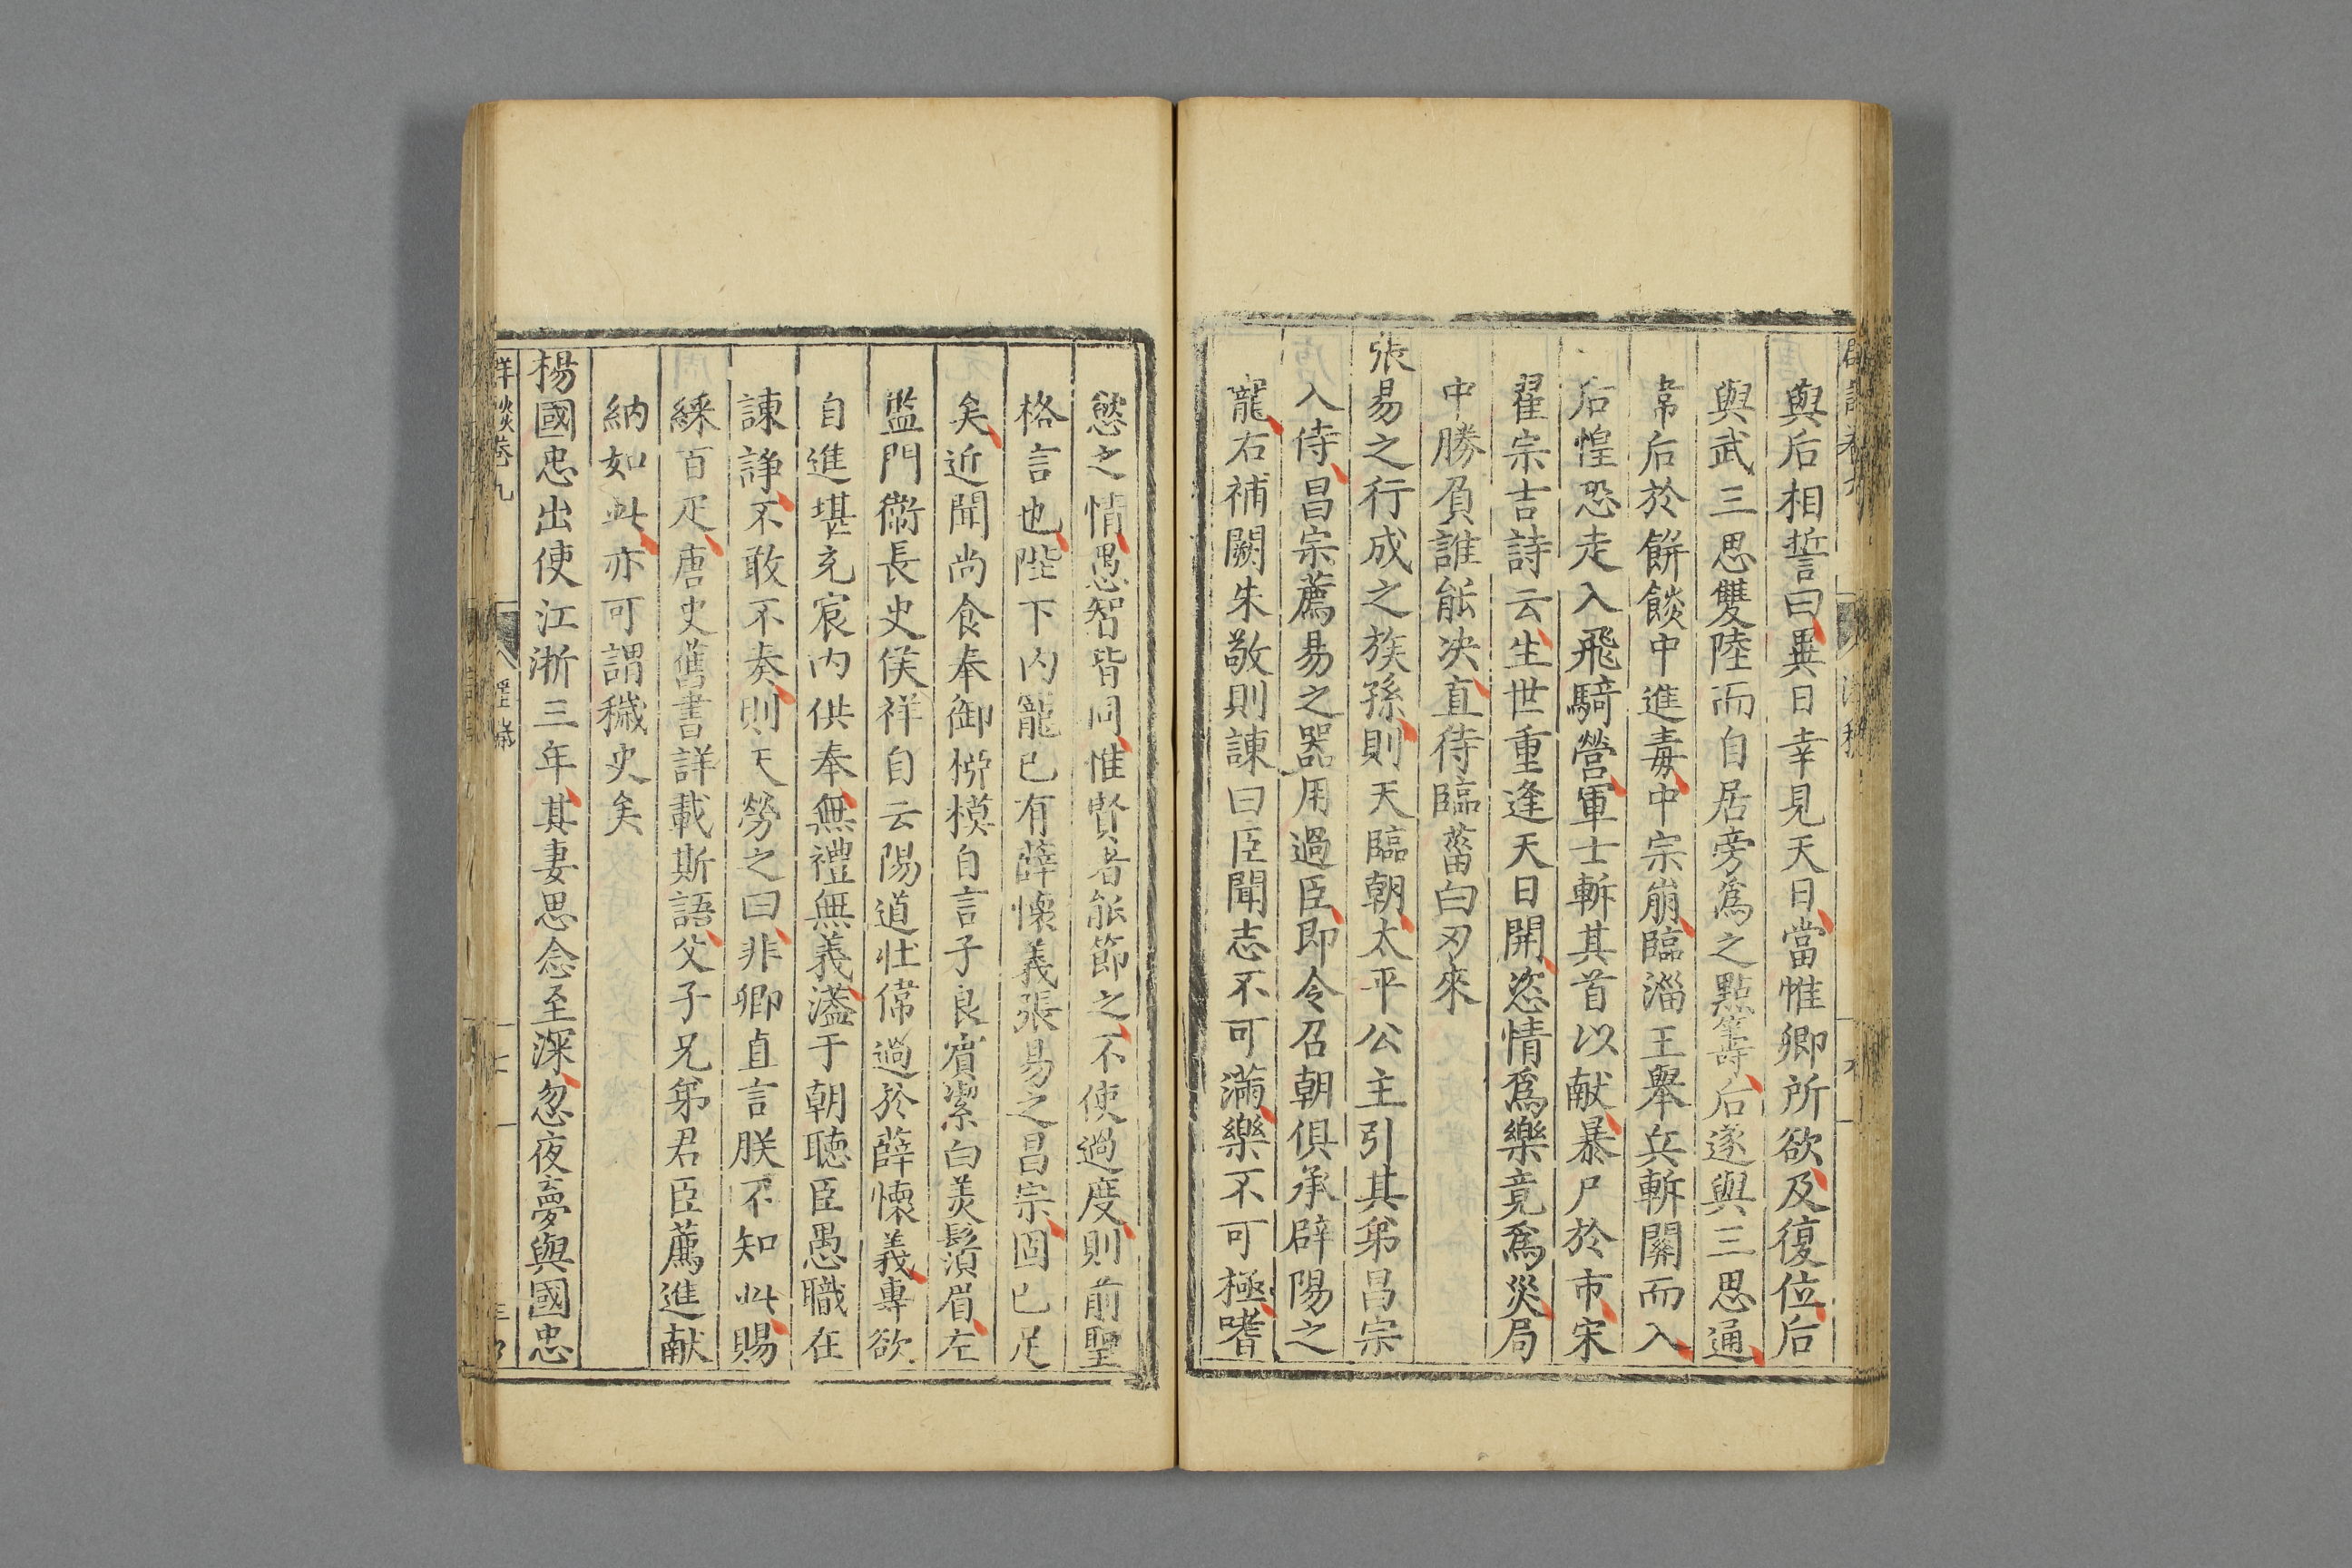 與后相誓曰異日幸見天日當惟卿所欲及復位后
與武三思雙陸而自居旁爲之點籌后遂與三思通
韋后於餅餤中進毒中宗崩臨淄王舉兵斬關而入
后惶恐走入飛騎營軍士斬其首以献暴尸於市宋
翟宗吉詩云生世重逢天日開恣情爲樂竟爲災局
中勝負誰能决直待臨菑白刃來
張易之行成之族孫則天臨朝太平公主引其弟昌宗
入侍昌宗薦易之器用過臣即令召朝俱承辟陽之
寵右補闕朱敬則諫曰臣聞志不可滿樂不可極嗜
慾之情愚智皆同惟賢者能節之不使過度則前聖
格言也陛下内寵已有薛懷義張易之昌宗固已足
矣近聞尚食奉御桺模自言子良賓潔白美鬚眉左
監門衞長史侯祥自云陽道壮偉過於薛懷義專欲
自進堪充宸内供奉無禮無義溢于朝聴臣愚職在
諫諍不敢不奏則天勞之曰非卿直言朕不知此賜
綵百疋唐史舊書詳載斯語父子兄弟君臣薦進献
納如此亦可謂穢史矣
楊國忠出使江浙三年其妻思念至深忽夜夢與國忠
卷九